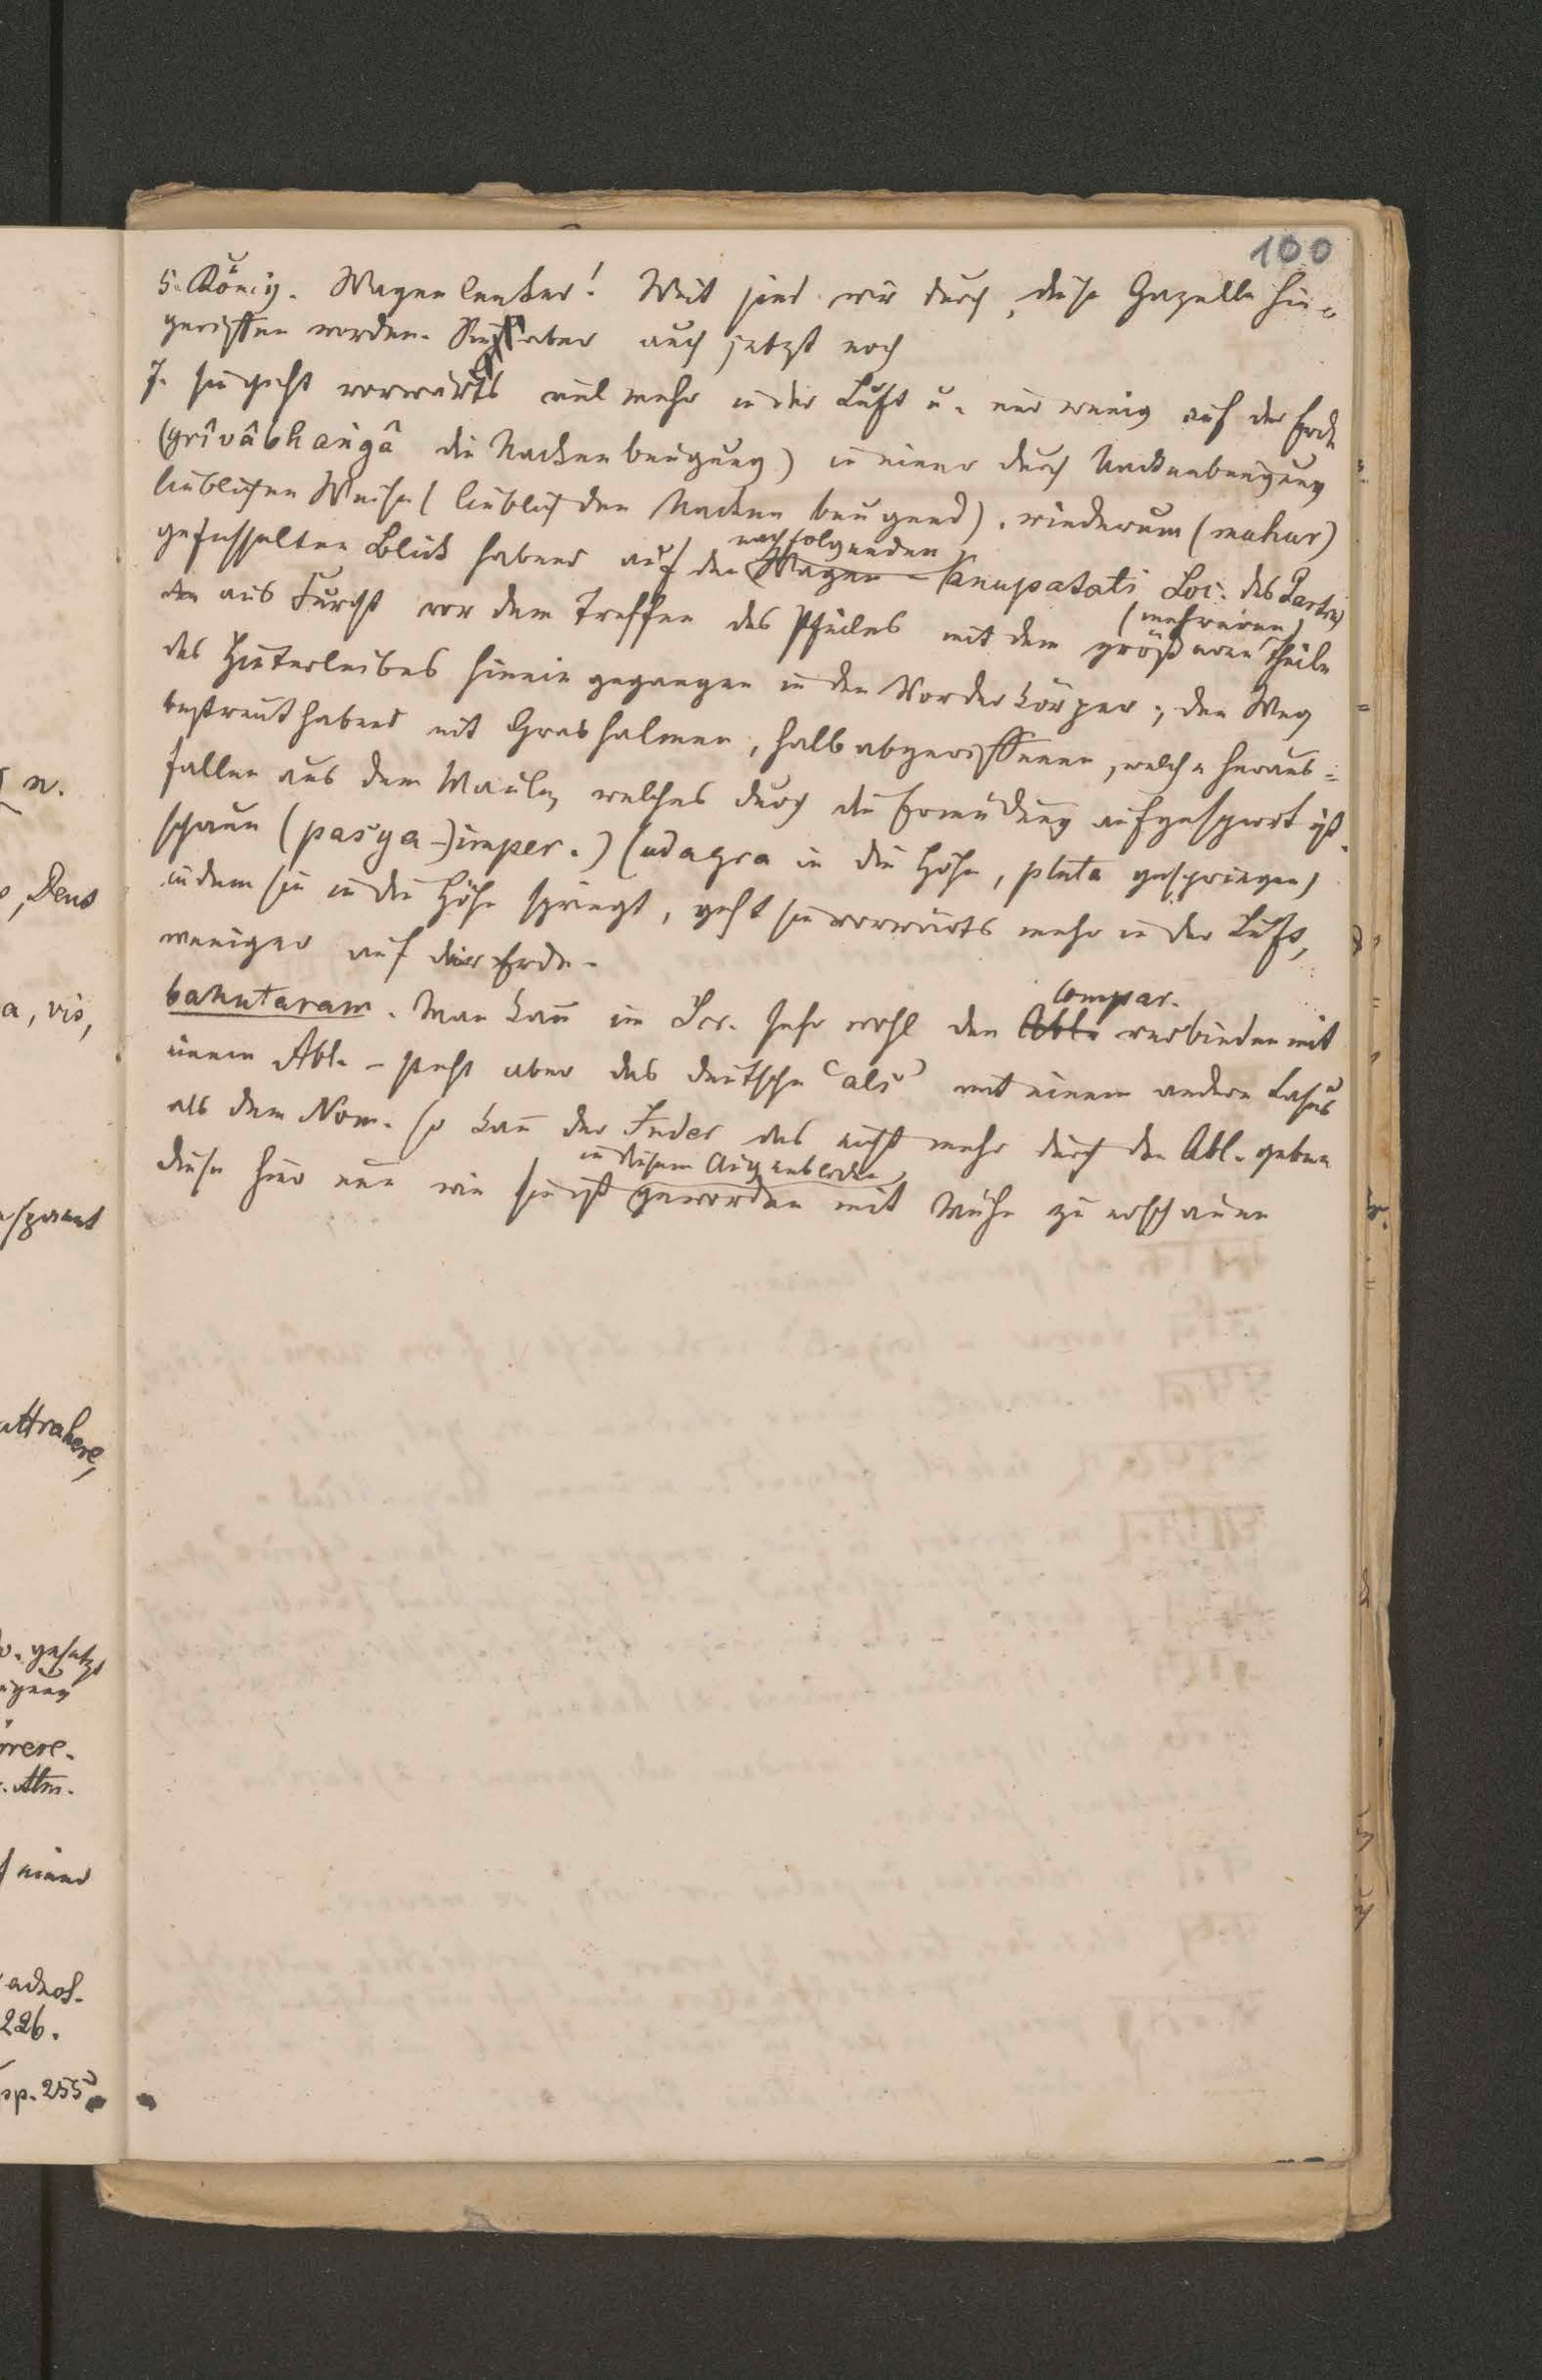 100
5. König. Wagenlenker! Weit sind wir durch diese Gazelle hin=
gerissen worden. Sie aber auch jetzt noch
7. sie geht vorwärts viel mehr in der Luft u. nur wenig auf der Erde
(grîvâbhangâ die Nackenbeugung) in einer durch Nackenbeugung
lieblichen Weise (lieblich den Nacken beugend). wiederum (muhur)
nachfolgenden
gefesselten Blick habend auf den Wagen - (anupatati Loc. des Partic)
(mehreren)
aus Furcht vor dem Treffen des Pfeiles mit dem größeren Theile
des Hinterleibes hinein gegangen in den Vorderkörper; den Weg
bestreut habend mit Grashalmen, halb abgerissenen, welche heraus=
fallen aus dem Maule, welches durch die Ermüdung aufgesperrt ist.
schaue (pasya - imper.) (udagra in die Höhe, pluta gesprungen)
indem sie in die Höhe springt, geht sie vorwärts mehr in der Luft,
weniger auf der Erde.
Compar.
bahutaram. Man kann im Scr. sehr wohl den Abl. verbinden mit
einem Abl. - steht aber das deutsche "als" mit einem andern Casus
als dem Nom. so kann der Inder das nicht mehr durch den Abl. geben
in diesem Augenblicke
diese hier nun wie sie ist geworden mit Mühe zu erschauen
n.
, Deus
a, vis,
attrahere,
. gesetzt
226.
sp. 255